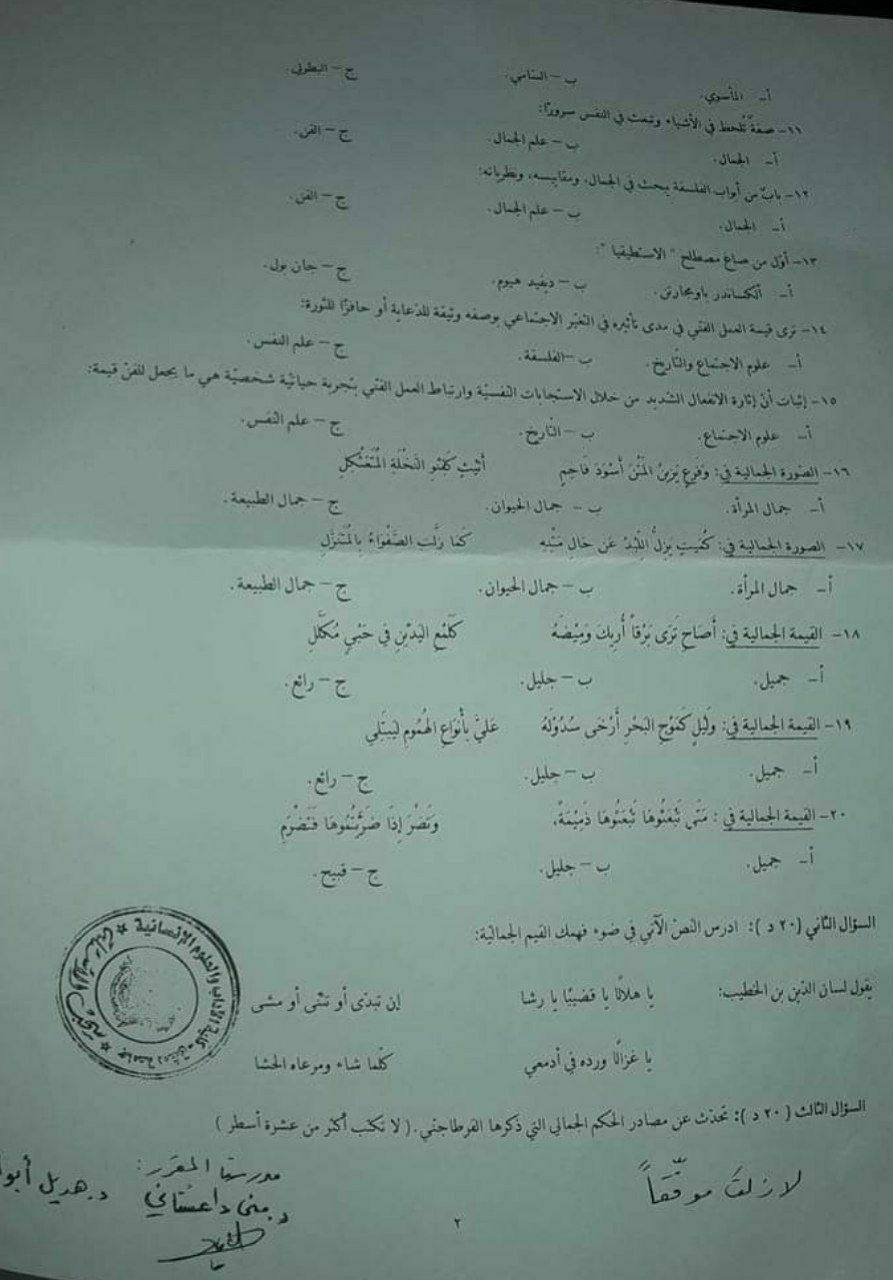 أ- المأسوي. ب – السّامي. ج – البطولي.
١١- صفةٌ تُلحظ في الأشياء وتبعث في النفس سرورًا:
أ- الجمال. ب – علم الجمال. ج – الفن.
١٢- بابٌ من أبواب الفلسفة يبحث في الجمال، ومقاييسه، ونظرياته:
أ- الجمال. ب – علم الجمال. ج – الفن.
١٣- أوّل من صاغ مصطلح " الاستطيقيا ":
أ- ألكساندر باومجارتن. ب – ديفيد هيوم. ج – جان بول.
١٤- ترى قيمة العمل الفنّي في مدى تأثيره في التغيّر الاجتماعي بوصفه وثيقة للدّعاية أو حافزًا للثورة:
أ- علوم الاجتماع والتّاريخ. ب –الفلسفة. ج – علم النفس.
١٥- إثبات أنّ إثارة الانفعال الشّديد من خلال الاستجابات النّفسيّة وارتباط العمل الفنّي بتجربة حياتيّة شخصيّة هي ما يجعل للفنّ قيمة:
أ- علوم الاجتماع. ب – التّاريخ. ج – علم النّفس.
١٦- الصّورة الجمالية في: وَفَرعٍ يَزينُ المَتْنَ أَسْوَدَ فَاحِمٍ أَثيثٍ كَقِنْوِ النَّخْلَةِ المُتَعَثْكِلِ
أ- جمال المرأة. ب - جمال الحيوان. ج – جمال الطبيعة.
١٧- الصورة الجمالية في: كُمَيتٍ يَزِلُّ اللِّبْدُ عَن حَالِ مَتْنِهِ كَمَا زَلَّتِ الصَّفْواءُ بِالمُتَنَزَّلِ
أ- جمال المرأة. ب – جمال الحيوان. ج – جمال الطبيعة.
١٨- القيمة الجمالية في: أَصَاحِ تَرَى بَرْقاً أُرِيكَ وَمِيْضَهُ كَلَمْعِ اليَدَيْنِ في حَبِيٍّ مُكَلَّلِ
أ- جميل. ب – جليل. ج – رائع.
١٩- القيمة الجمالية في: وَلَيْلٍ كَمَوْجِ البَحْرِ أَرْخَى سُدُوْلَهُ عَلَيَّ بِأَنْوَاعِ الهُمُومِ لِيَبْتَلي
أ- جميل. ب – جليل. ج – رائع.
٢٠- القيمة الجمالية في : مَتَى تَبْعَثُوهَا تَبْعَثُوهَا ذَمِيْمَةً، وَتَضْرَ إِذَا ضَرَّيْتُمُوهَا فَتَضْرَمِ
أ- جميل. ب – جليل. ج – قبيح.
السؤال الثاني (٢٠ د ): ادرس النصّ الآتي في ضوء فهمك القيم الجماليّة:
يقول لسان الدّين بن الخطيب: يا هلالًا يا قضيبًا يا رشا إن تبدّى أو تثنّى أو مشى
يا غزالًا ورده في أدمعي كلّما شاء ومرعاه الحشا
السؤال الثالث ( ٢٠ د ): تحدّث عن مصادر الحكم الجمالي التي ذكرها القرطاجنّي.( لا تكتب أكثر من عشرة أسطر )
لا زلت موفّقاً
مدرستا المقرر:
د. منى داغستاني د. هديل
جامعة دمشق كلية الآداب والعلوم الإنسانية
٢